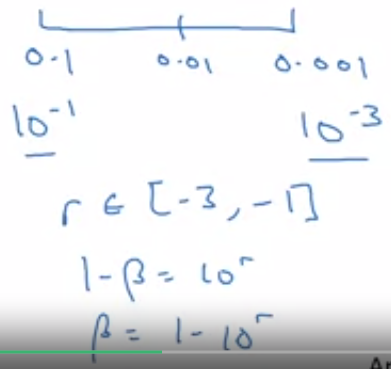 0.1 0.01 0.001
10⁻¹ 10⁻³
r ∈ [-3, -1]
1-β = 10ʳ
β = 1-10ʳ